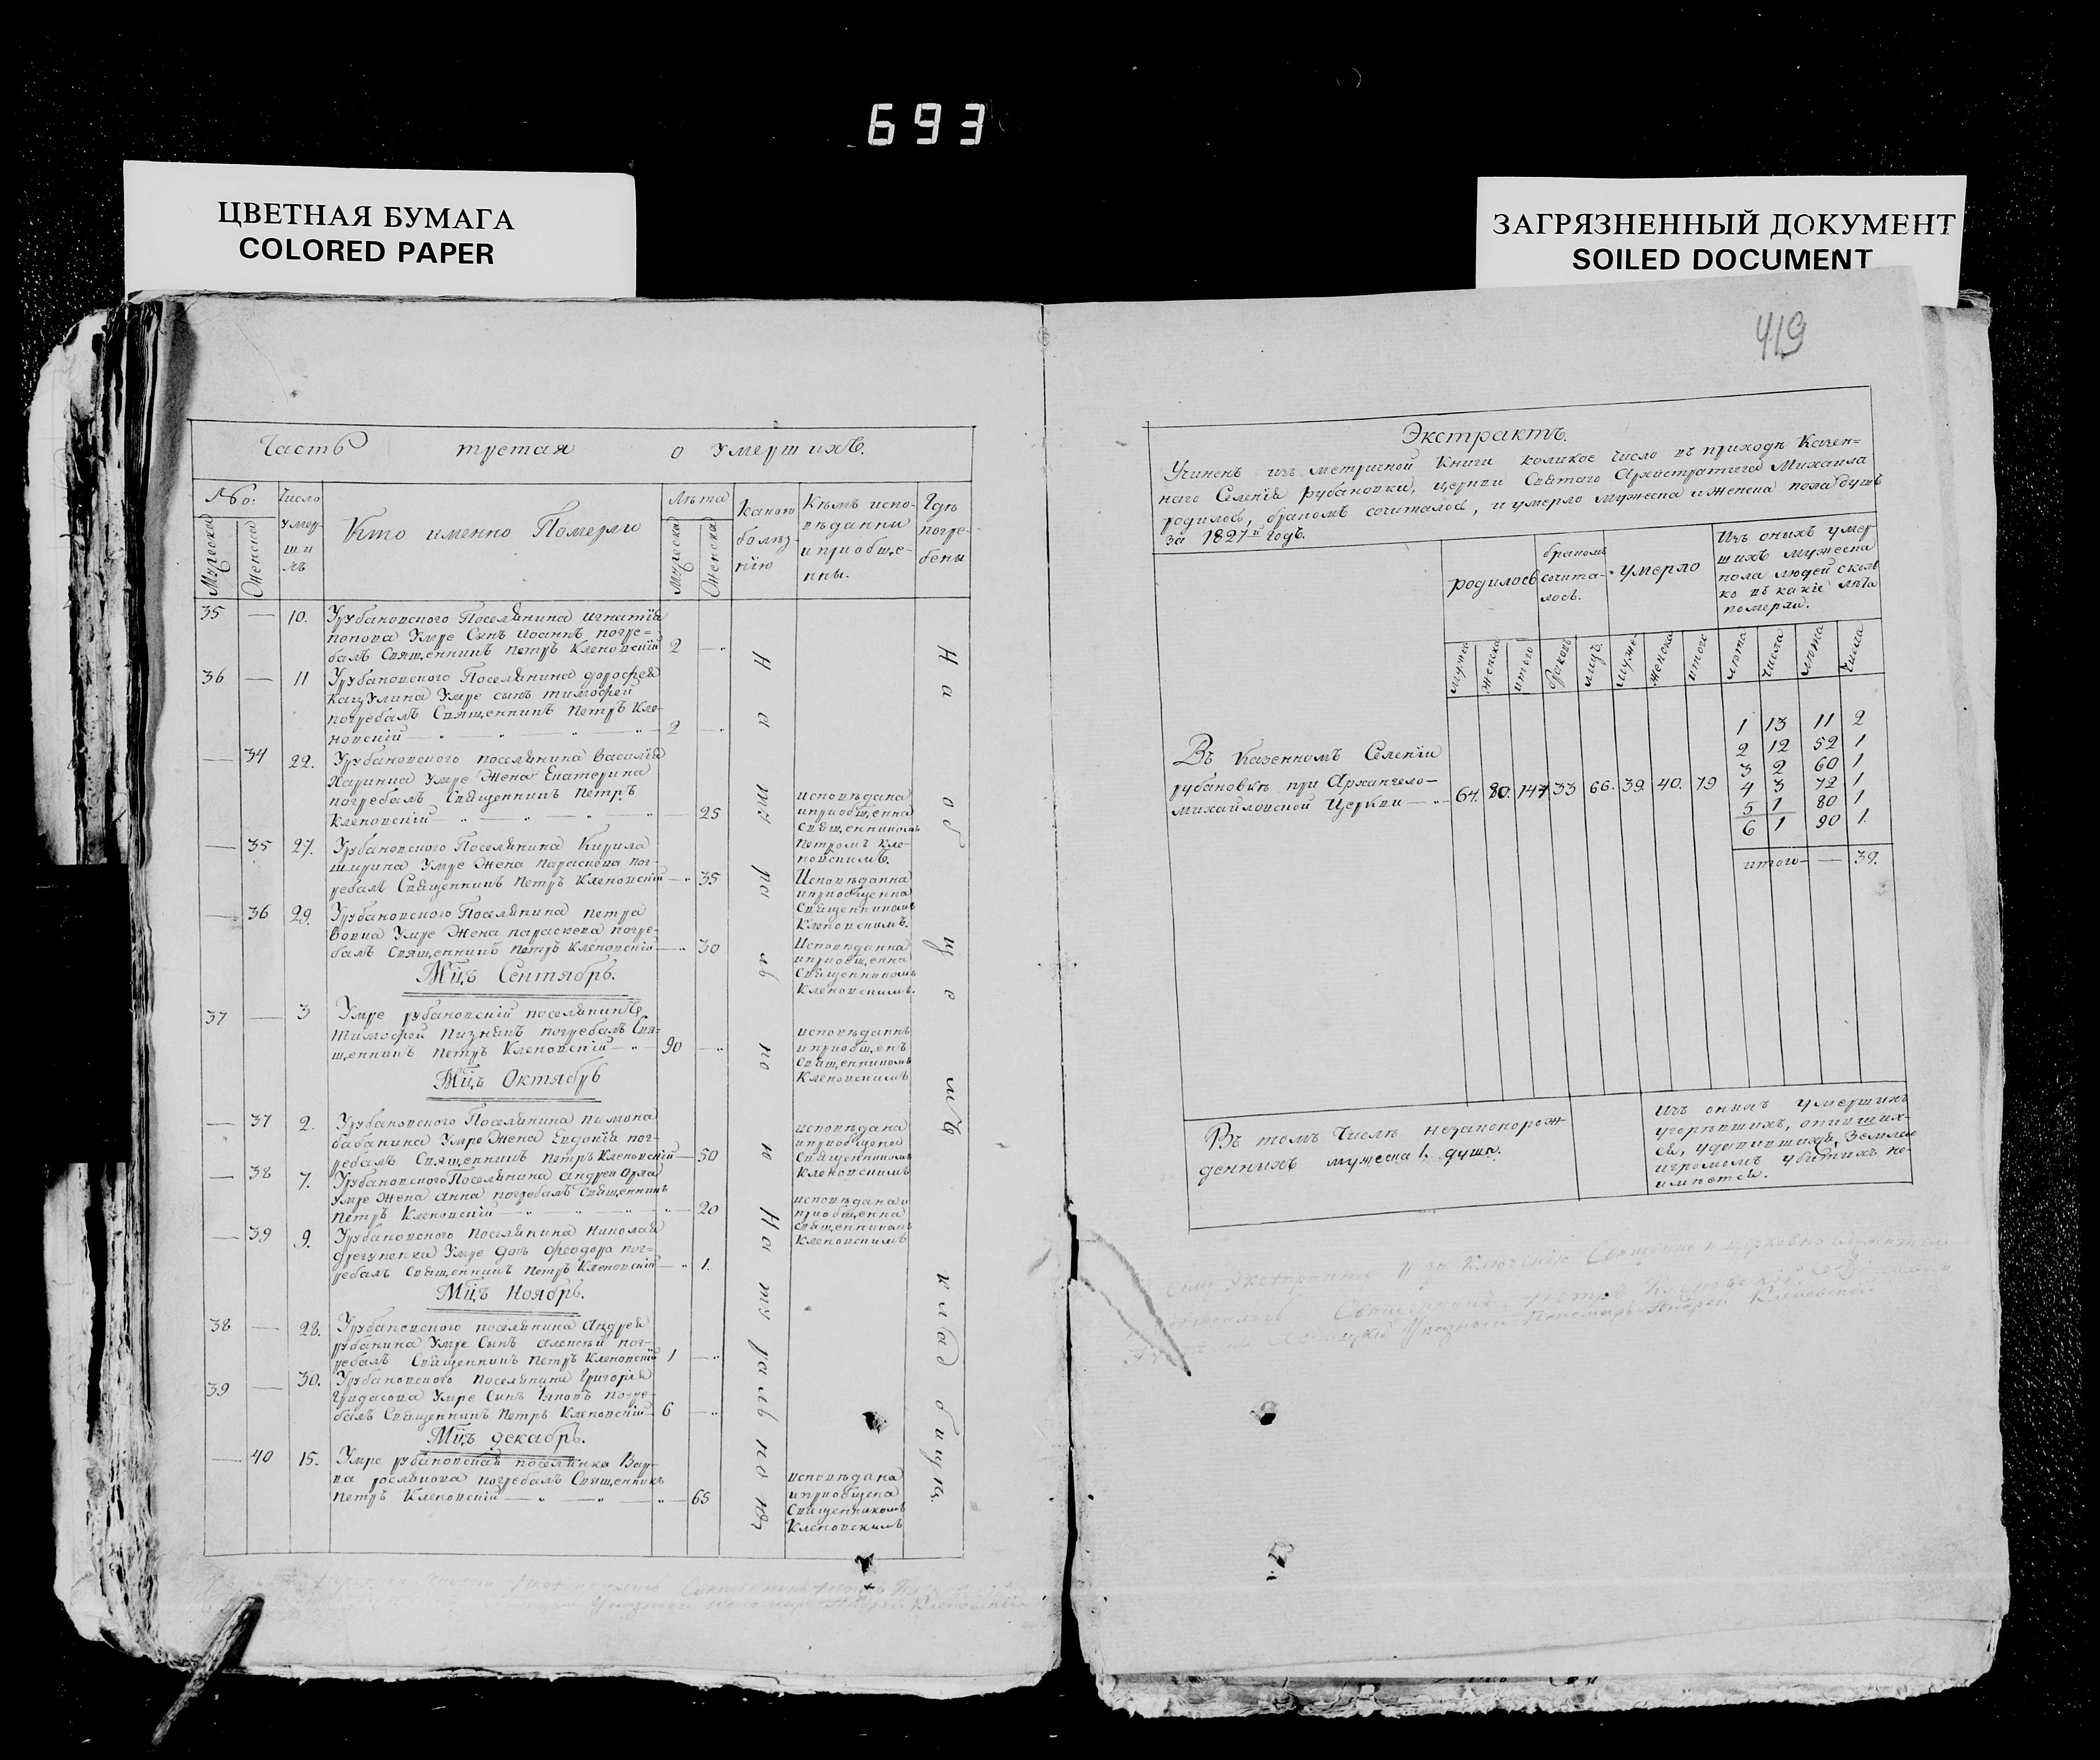 693
ЦВЕТНАЯ БУМАГА
COLORED PAPER
ЗАГРЯЗНЕННЫЙ ДОКУМЕНТ
SOILED DOCUMENT
Часть третая о умершихъ.
№о:
Мужеска
Женска
Число
умер-
ши
хъ
Кто именно Померли
Лѣта
Мужеска
Женска
какою
болѣз-
нію
Кѣмъ испо-
вѣданны
и приобще-
нны.
Гдѣ
погре-
бены
35 — 10. Урубановского Поселянина игнатія
попова Умре Сынъ иоаннъ погре=
балъ Священникъ Петръ Кленовскій 2 —
36 — 11 Урубановского Поселянина дорофея
Умре сынъ тимофей
погребалъ Священникъ Петръ Кле-
новскій — 2 —
— 34 22. Урубановского поселянина Василія
Умре Жена Екатерина
погребалъ Священникъ Петръ
Кленовскій — 25
исповѣдана
иприобщенна
Священникомъ
Петромъ Кле-
новскимъ.
— 35 27. Урубановского Поселянина Кирила
Умре Жена параскева пог-
ребалъ Священникъ Петръ Кленовскій — 35
Исповѣданна
иприобщенна
Священникомъ
Кленовскимъ.
— 36 29. Урубановского Поселянина петра
Умре Жена параскева погре-
балъ Священникъ Петръ Кленовскій — 30
Исповѣданна
иприобщенна
Священникомъ
Кленовскимъ.
Мцъ Сентябрь.
37 — 3 Умре рубановскій поселянинъ
Тимофей погребалъ Свя-
щенникъ Петръ Кленовскій — 90 —
исповѣданнъ
иприобщенъ
Священникомъ
Кленовскимъ
Мцъ Октябрь
— 37 2. Урубановского Поселянина пимона
бабанина Умре Жена Евдокія пог-
ребалъ Священникъ Петръ Кленовскій — 50
исповѣдана
иприобщена
Священникомъ
Кленовскимъ
— 38 7. Урубановского Поселянина андрея орла
Умре Жена анна погребалъ Священникъ
Петръ Кленовскій — 20
исповѣдана и
приобщенна
священникомъ
Кленовскимъ
— 39 9. Урубановского Поселянина Николая
Умре дочь феодора пог=
ребалъ Священникъ Петръ Кленовскій — 1.
Мцъ Ноябрь.
38 — 28. Урубановского поселянина Андрея
рубанина Умре Сынъ алексѣй пог-
ребалъ Священникъ Петръ Кленовскій 1 —
39 — 30. Урубановского поселянина Григорія
Гридасова Умре Сынъ Іяковъ погре-
балъ Священникъ Петръ Кленовскій 6 —
Мцъ декабрь.
— 40 15. Умре рубановская поселянка Вар-
ва рослякова погребалъ Священникъ
Петръ Кленовскій — 65
исповѣдана
иприобщена
Священникомъ
Кленовскимъ
Натуральною
Натуральною
На обще
кладбищѣ.
419
Экстрактъ.
Учиненъ изъ метрисной Книги коликое число въ приходѣ Казен=
наго Селенія рубановки, церкви Святаго Архистратига Михаила
родилось, бракомъ сочиталось, и умерло мужеска и женска пола душъ
за 1827й годъ.
родилось
бракомъ
сочита-
лось.
умерло
Изъ оныхъ умер
шихъ мужеска
пола людей сколь
ко въ какіе лѣта
померли.
мужеска
женска
итого
браковъ
лицъ.
мужес.
женска
итого
лѣта
числа
лѣта
числа
Въ Казенномъ Селеніи
рубановкѣ при Архангело—
михайловской Церкви —
64. 80. 144 33 66. 39. 40. 79
1 13 11 2
2 12 52 1
3 2 60 1
4 3 72 1
5 1 80 1
6 1 90 1.
итого — 39.
Въ томъ Числѣ незаконорож
денныхъ мужеска 1. душа.
Изъ онихъ умершихъ
угорѣвшихъ, опивших-
ся, удавившихся, Землею
игромомъ убитихъ не-
имѣется.